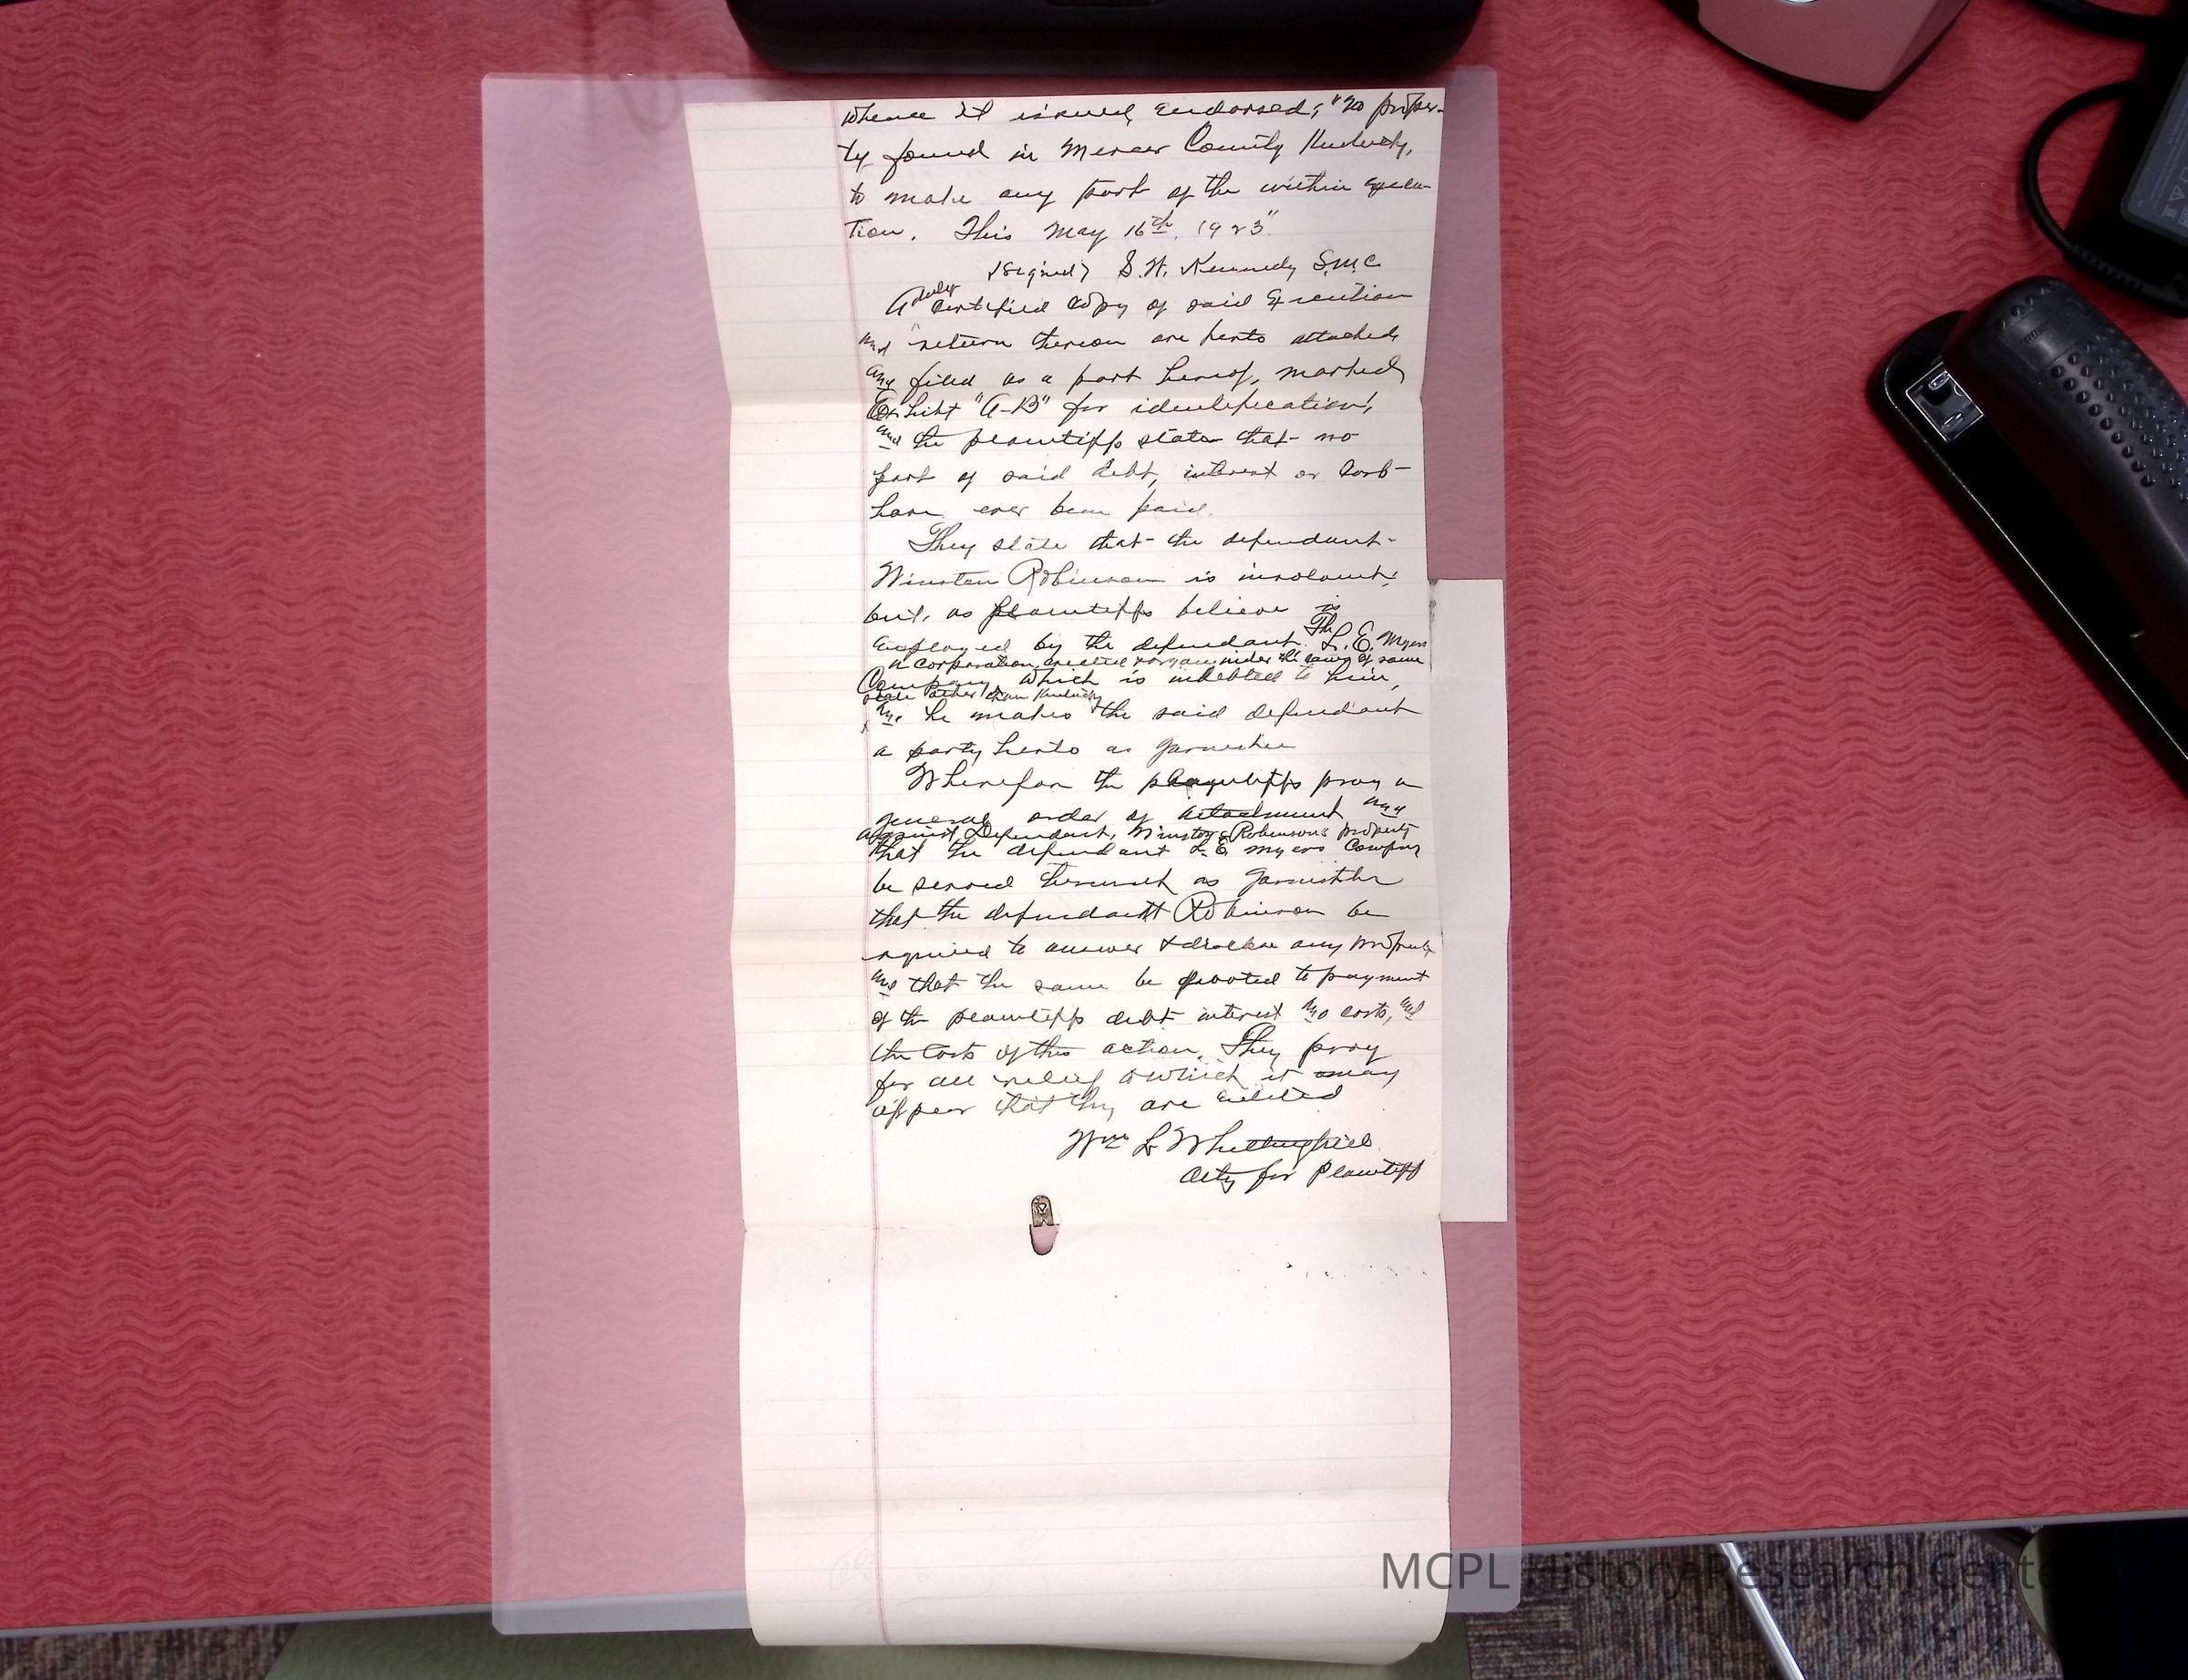 whence it issued, endorsed; "no proper-
ty found in Mercer County Kentucky,
to make any part of the within execu-
tion. This May 16th, 1923"
(signed) S.H. Kennedy S.M.C.
duly
A certified copy of said Execution
and return thereon are herto attached
and filed as a part hereof, marked
Exhibit "A-B" for identification,
and the plaintiffs state that no
part of said debt, interest or cost
have ever been paid.
They state that the defendant
Winston Robinson is insolvent;
but, as plaintiffs believe is
employed by the defendant The L. E. Myers
a corporation created & organ under the laws of some
Company, which is indebted to him,
state other than Kentucky
and he makes the said defendant
a party herto as garnishee
Wherefore the plaintiffs pray a
general order of attachment and
against Defendant, Winston Robinson's property
that the defendant L. E. Myers Company
be served therewith as garnishee
that the defendant Robinson be
required to answer & disclose any property
and that the same be devoted to payment
of the plaintiffs debt interest and costs, and
the costs of this action. They pray
for all relief to which it may
appear that they are entitled
Wm L Whittinghill
Atty for Plaintiff
MCPL History Research Cente